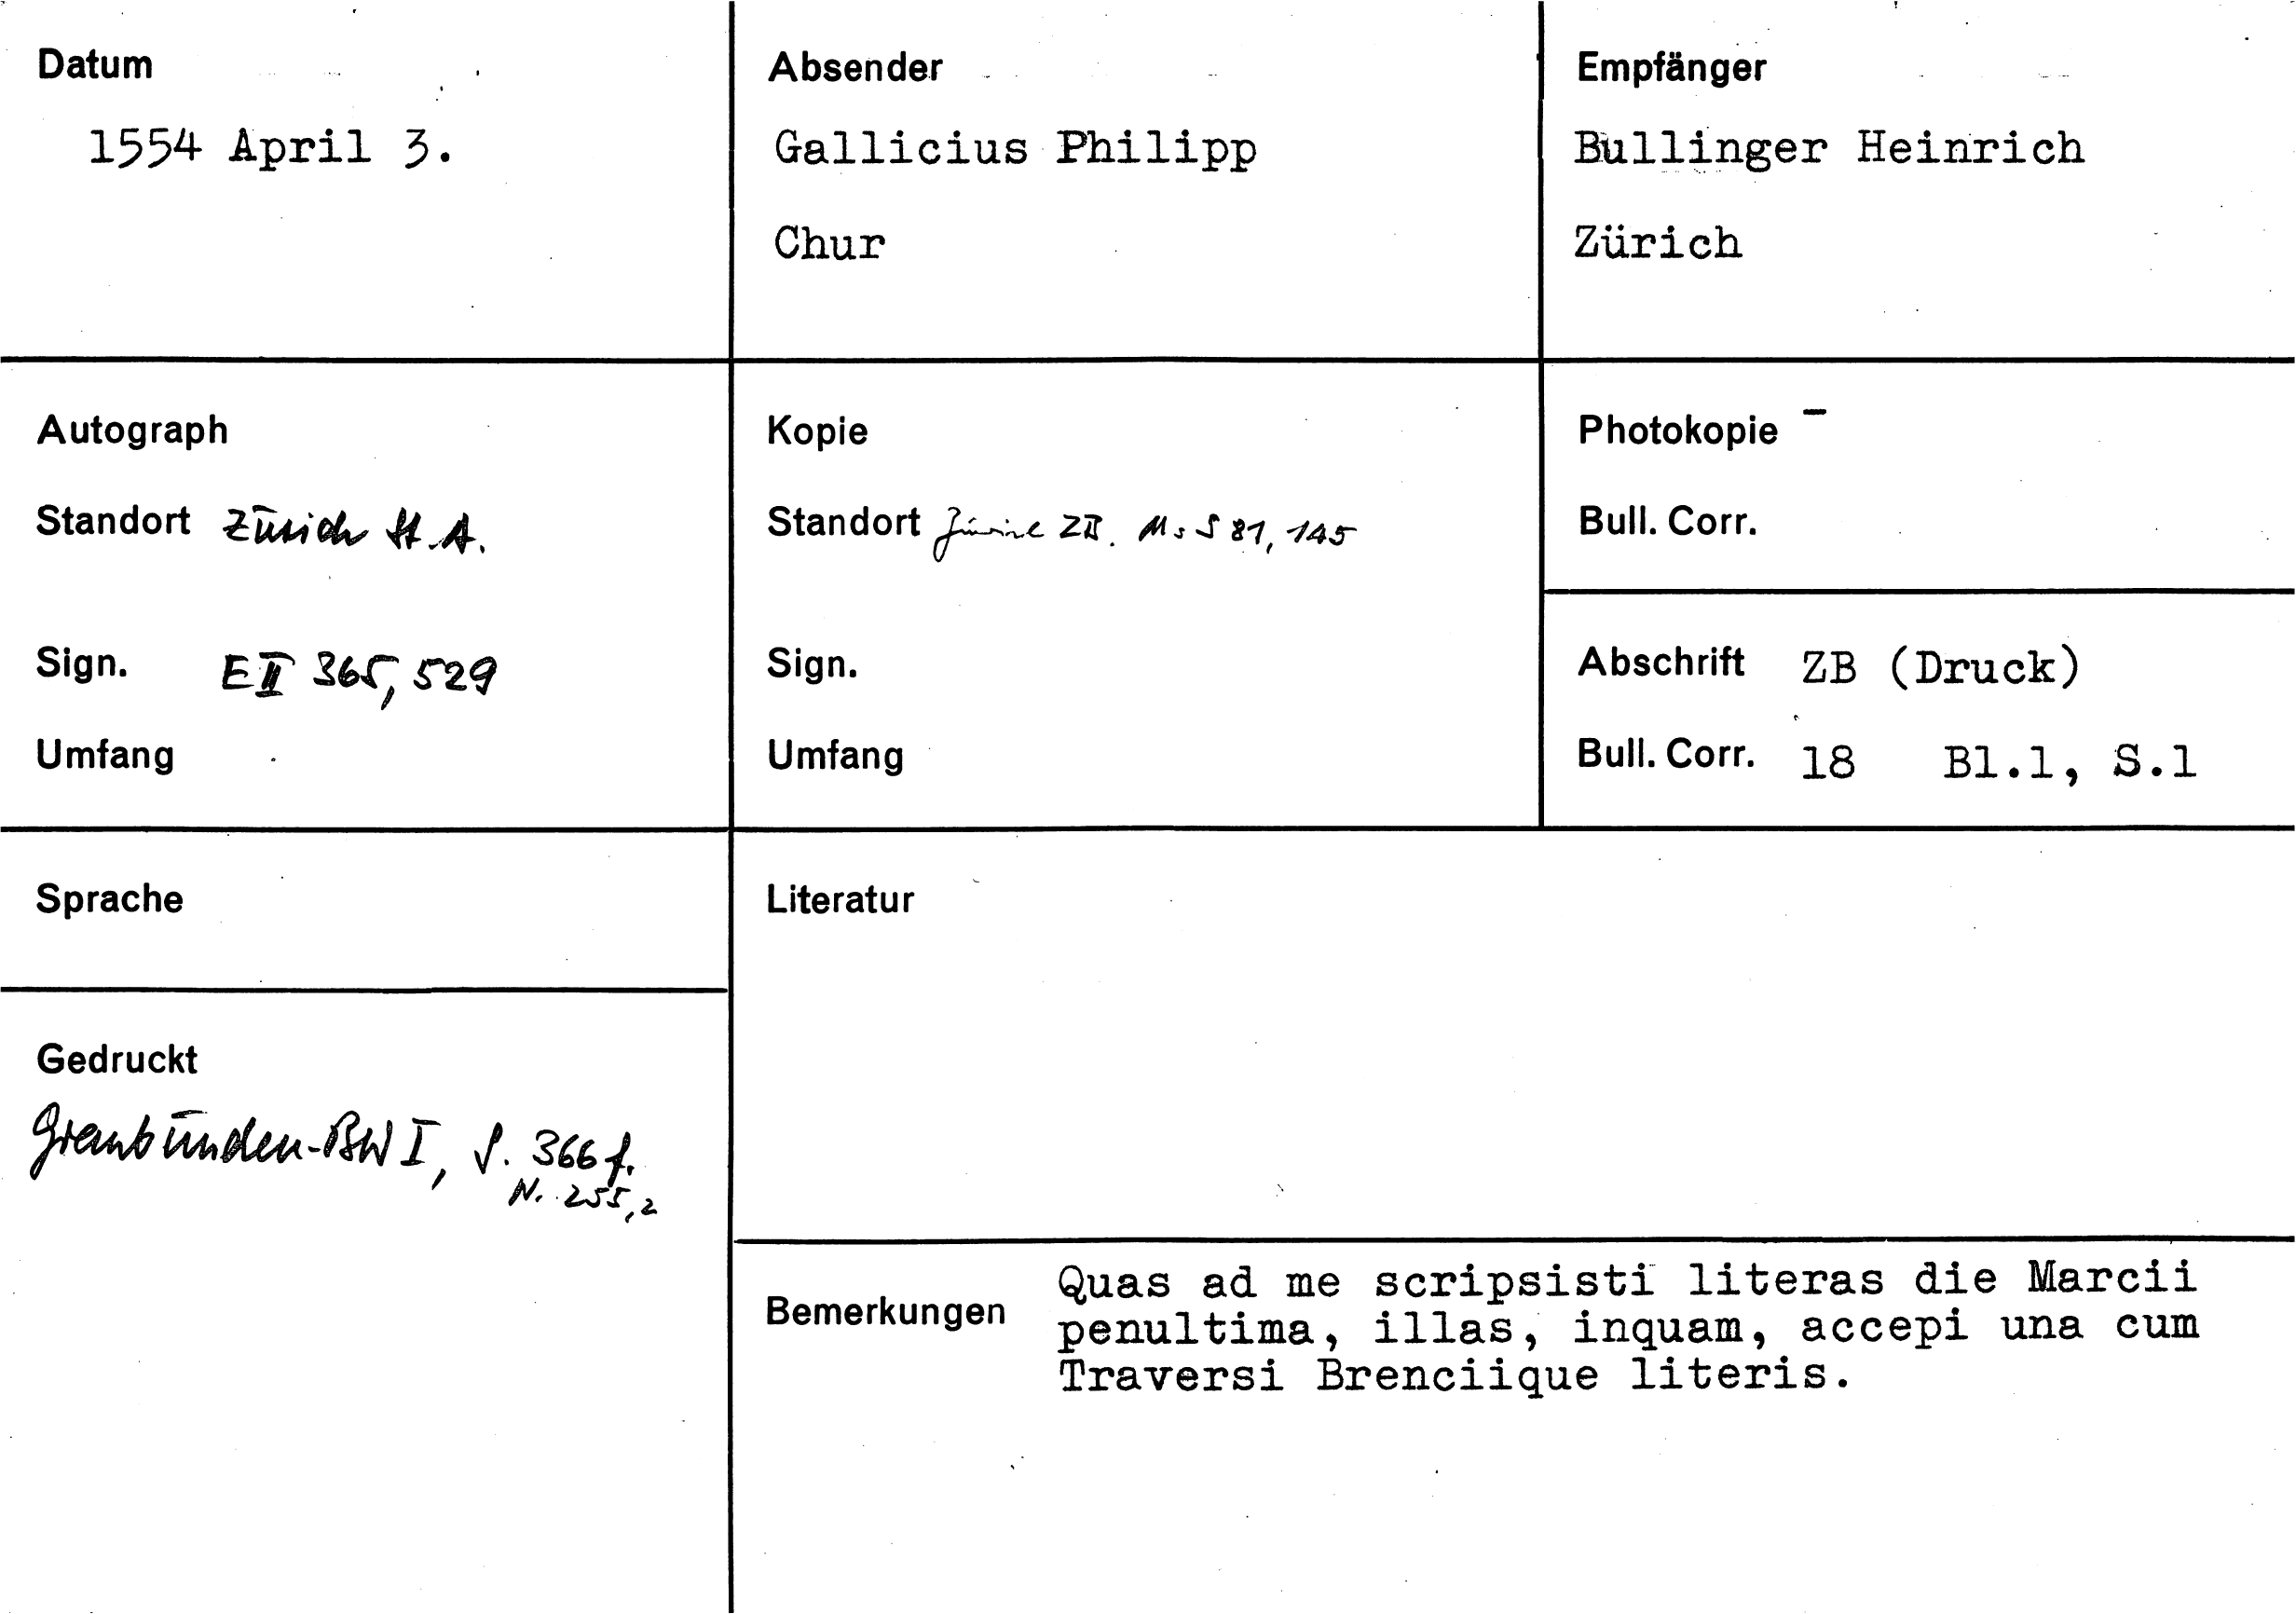 Datum
1554 April 3.
Absender
Gallicius Philipp
Chur
Empfänger
Bullinger Heinrich
Zürich
Autograph
Standort Zürich St.A.
Sign. E II 365, 529
Umfang
Kopie
Standort Zürich ZB. Ms S 81, 145
Sign.
Umfang
Photokopie –
Bull. Corr.
Abschrift ZB (Druck)
Bull. Corr. 18 Bl.1, S.1
Sprache
Gedruckt
Graubünden-BW I, S. 366 f.
N. 255,2
Literatur
Bemerkungen
Quas ad me scripsisti literas die Marcii
penultima, illas, inquam, accepi una cum
Traversi Brenciique literis.